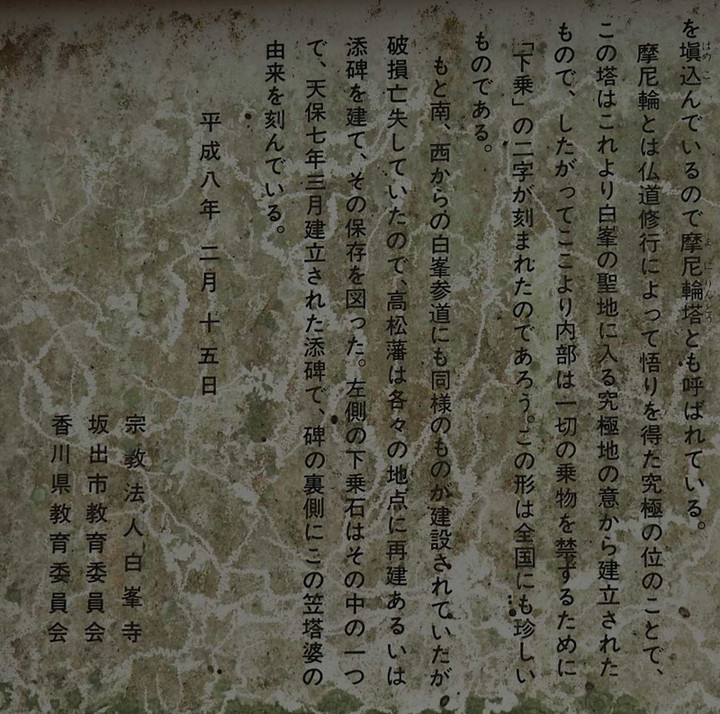 を塡込んでいるので摩尼輪塔とも呼ばれている。
摩尼輪とは仏道修行によって悟りを得た究極の位のことで、
この塔はこれより白峯の聖地に入る究極地の意から建立された
もので、したがってここより内部は一切の乗物を禁ずるために
「下乗」の二字が刻まれたのであろう。この形は全国にも珍しい
ものである。
もと南、西からの白峯参道にも同様のものが建設されていたが
破損亡失していたので、高松藩は各々の地点に再建あるいは
添碑を建て、その保存を図った。左側の下乗石はその中の一つ
で、天保七年三月建立された添碑で、碑の裏側にこの笠塔婆の
由来を刻んでいる。
平成八年 二月 十五日
宗教法人白峯寺
坂出市教育委員会
香川県教育委員会